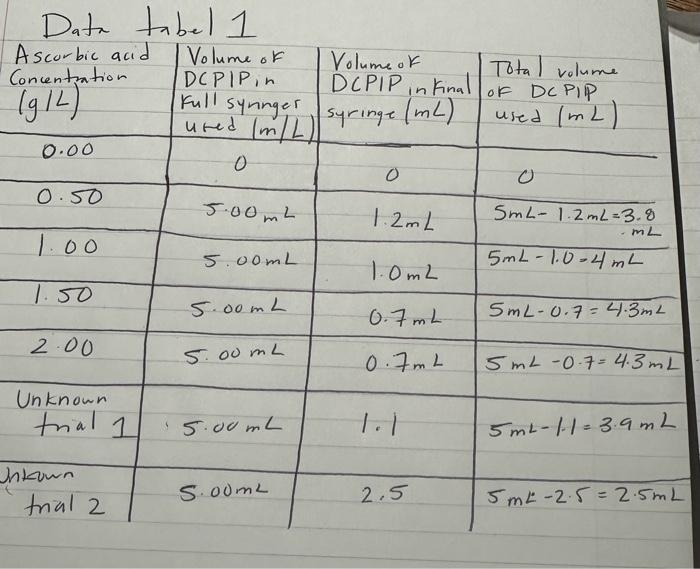 Data tabel 1
Ascorbic acid Concentration (g/L) | Volume of DCPIP in Full synnger used (m/L) | Volume of DCPIP in Final syringe (mL) | Total volume of DCPIP used (mL)
0.00 | 0 | 0 | 0
0.50 | 5.00mL | 1.2mL | 5mL - 1.2mL = 3.8 mL
1.00 | 5.00mL | 1.0mL | 5mL - 1.0 = 4mL
1.50 | 5.00mL | 0.7mL | 5mL - 0.7 = 4.3mL
2.00 | 5.00mL | 0.7mL | 5mL - 0.7 = 4.3mL
Unknown trial 1 | 5.00mL | 1.1 | 5mL - 1.1 = 3.9mL
Unkown trial 2 | 5.00mL | 2.5 | 5mL - 2.5 = 2.5mL